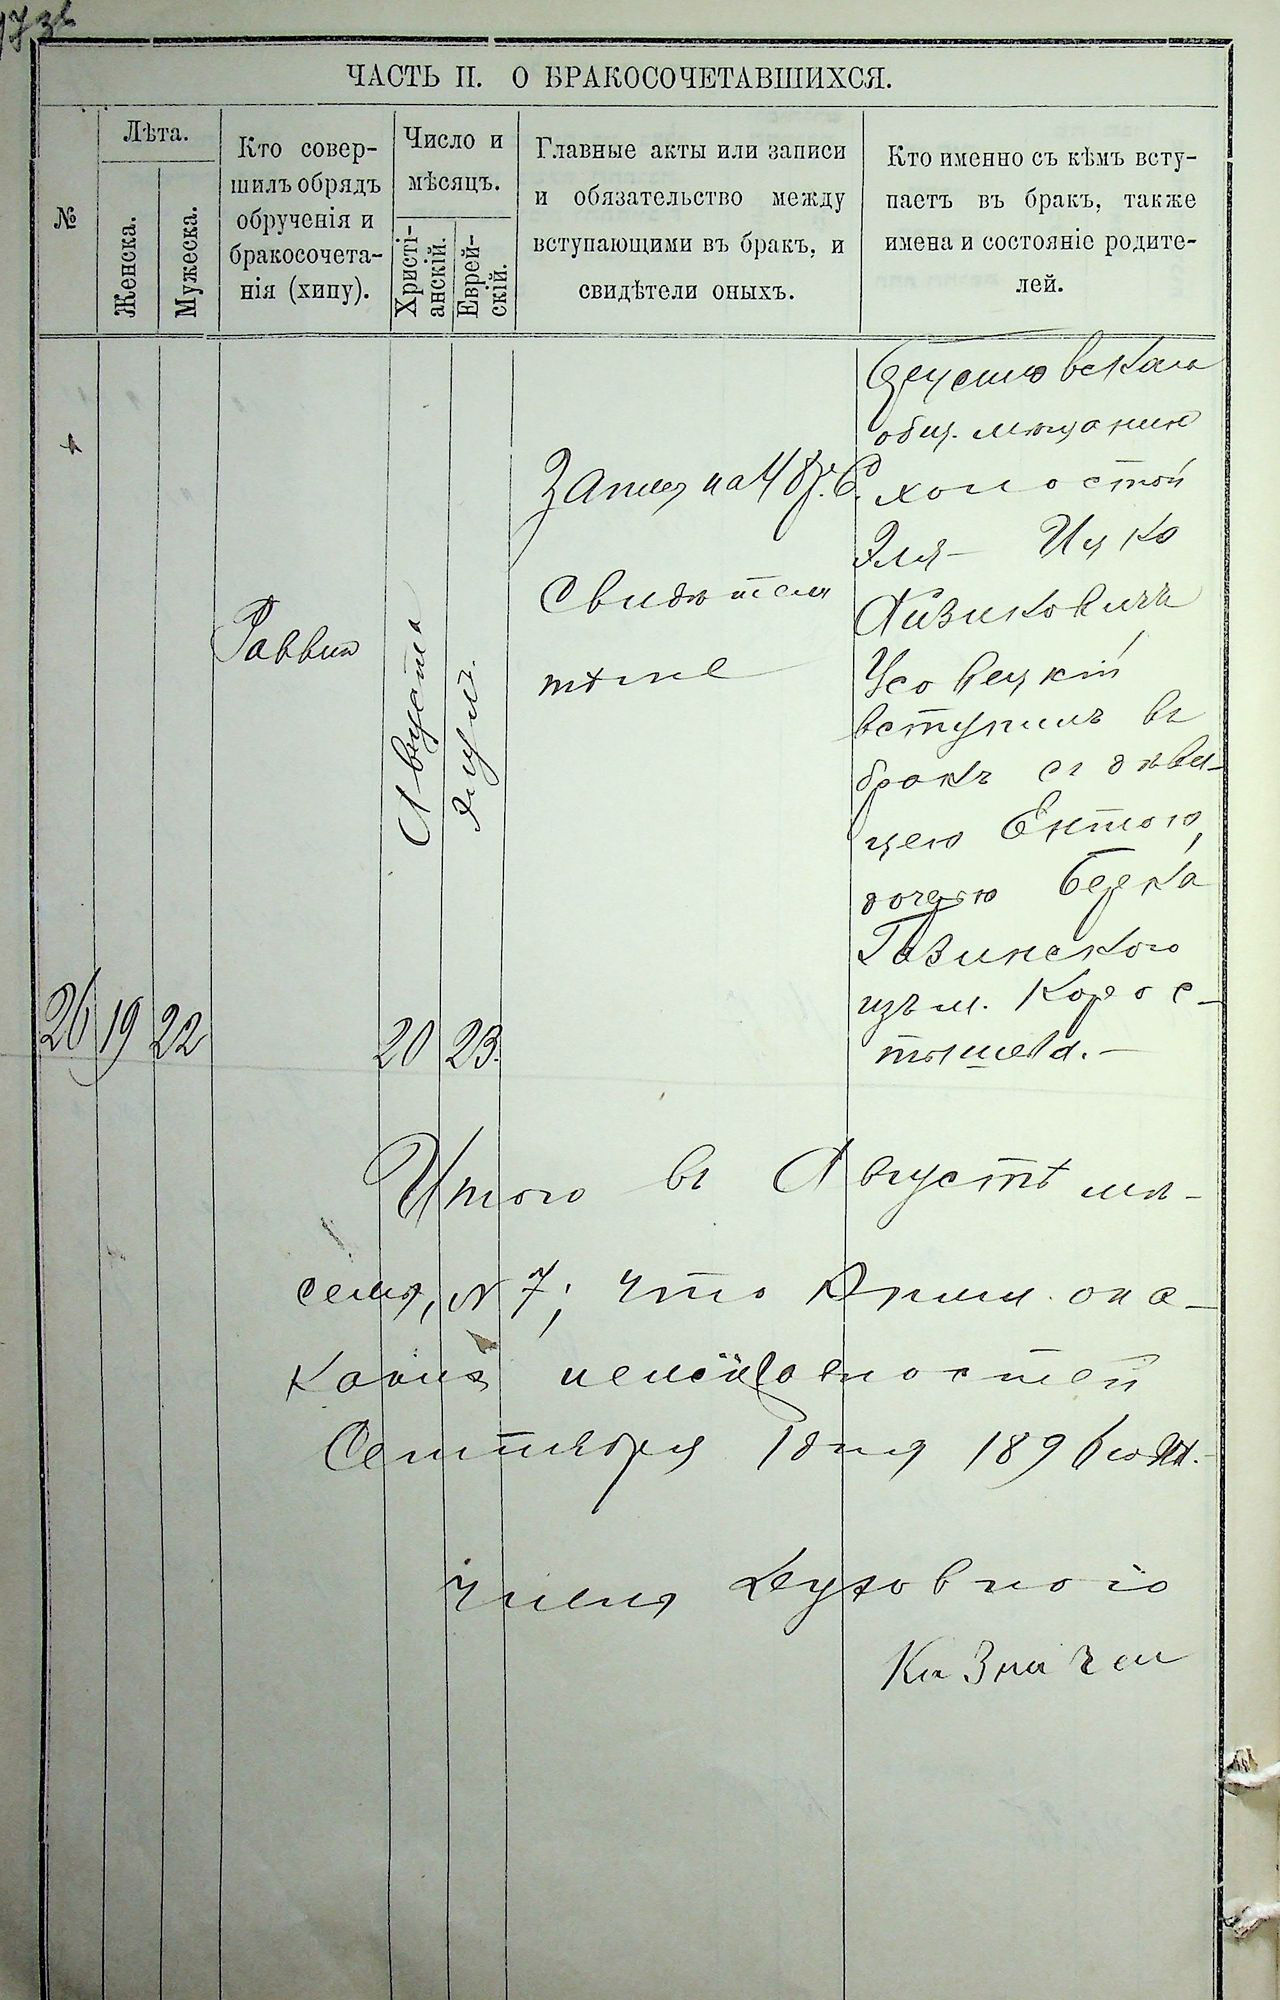 ЧАСТЬ II. О БРАКОСОЧЕТАВШИХСЯ.
№
Лѣта.
Женска.
Мужеска.
Кто совер-
шилъ обрядъ
обрученія и
бракосочета-
нія (хипу).
Число и
мѣсяцъ.
Христі-
анскій.
Еврей-
скій.
Главные акты или записи
и обязательство между
вступающими въ бракъ, и
свидѣтели оныхъ.
Кто именно съ кѣмъ всту-
паетъ въ бракъ, также
имена и состояніе родите-
лей.
26
19
22
Раввин
Августа
20
Элул.
23.
Запись на 48 р. С.
Свидѣтели
тѣ же
общ. мещанин
холостой
Эля- Ицко
Айзиковичъ
Усовецкій
вступилъ въ
бракъ съ дѣви-
цею Ентою,
дочерью Берка
Газинского
изъ м. Корос-
тышева.-
Итого въ Августѣ мѣ-
сецѣ, № 7; что
Сентября 1 дня 1896
Члены Духовного
Казначеи